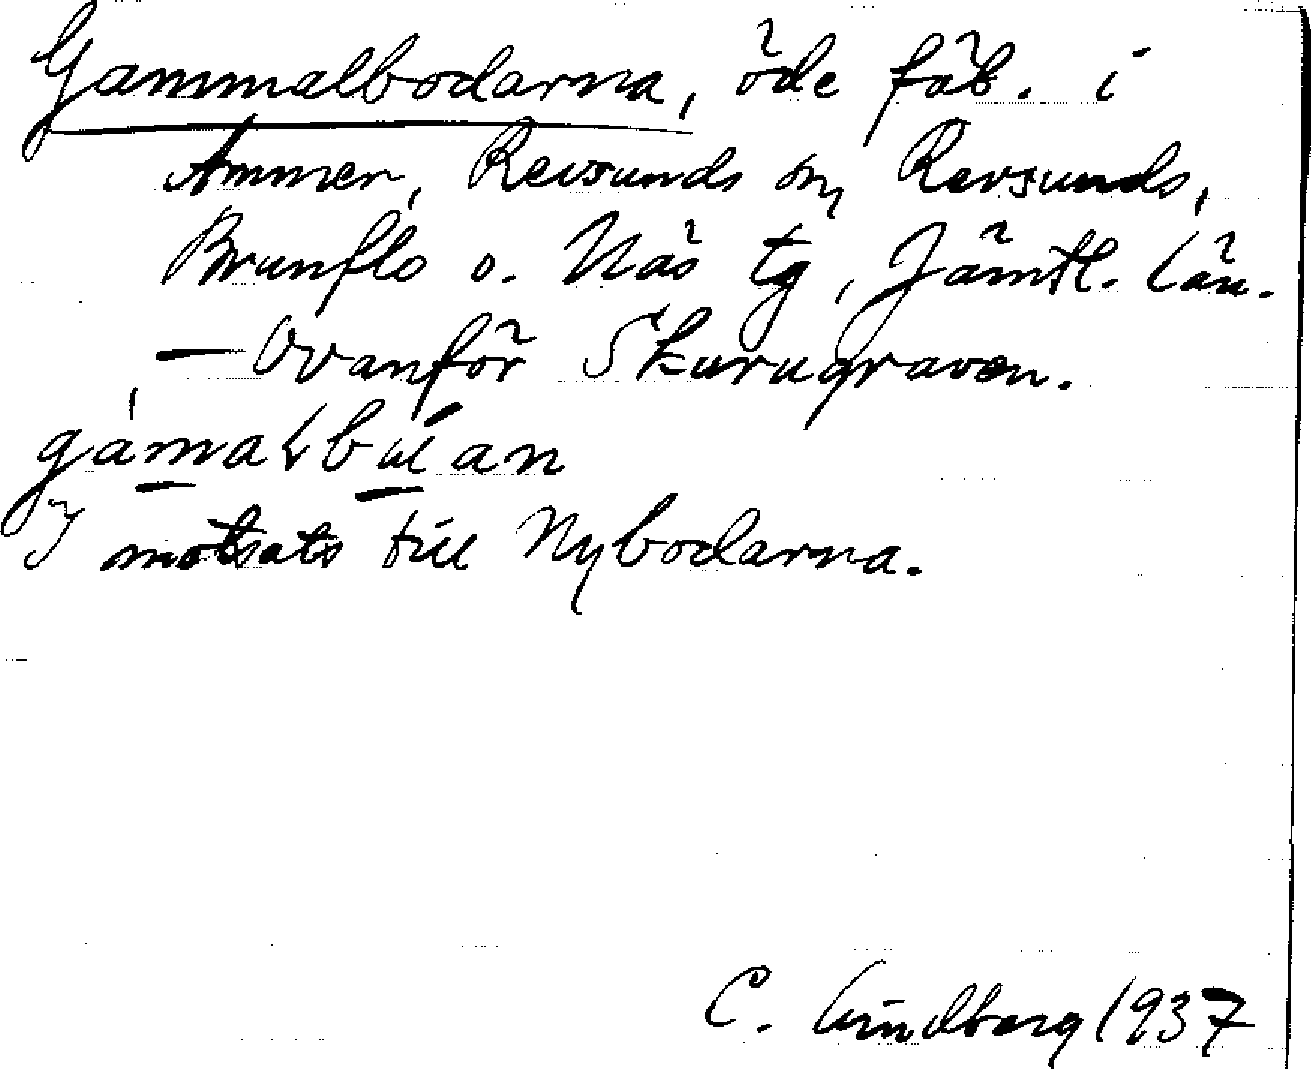 Gammalbodarna, öde fäb. i
Ammer, Revsunds sn, Revsunds,
Brunflo o. Näs tg, Jämtl. län.
— Ovanför Skurugraven.
I motsats till Nybodarna.
C. Lindberg 1937